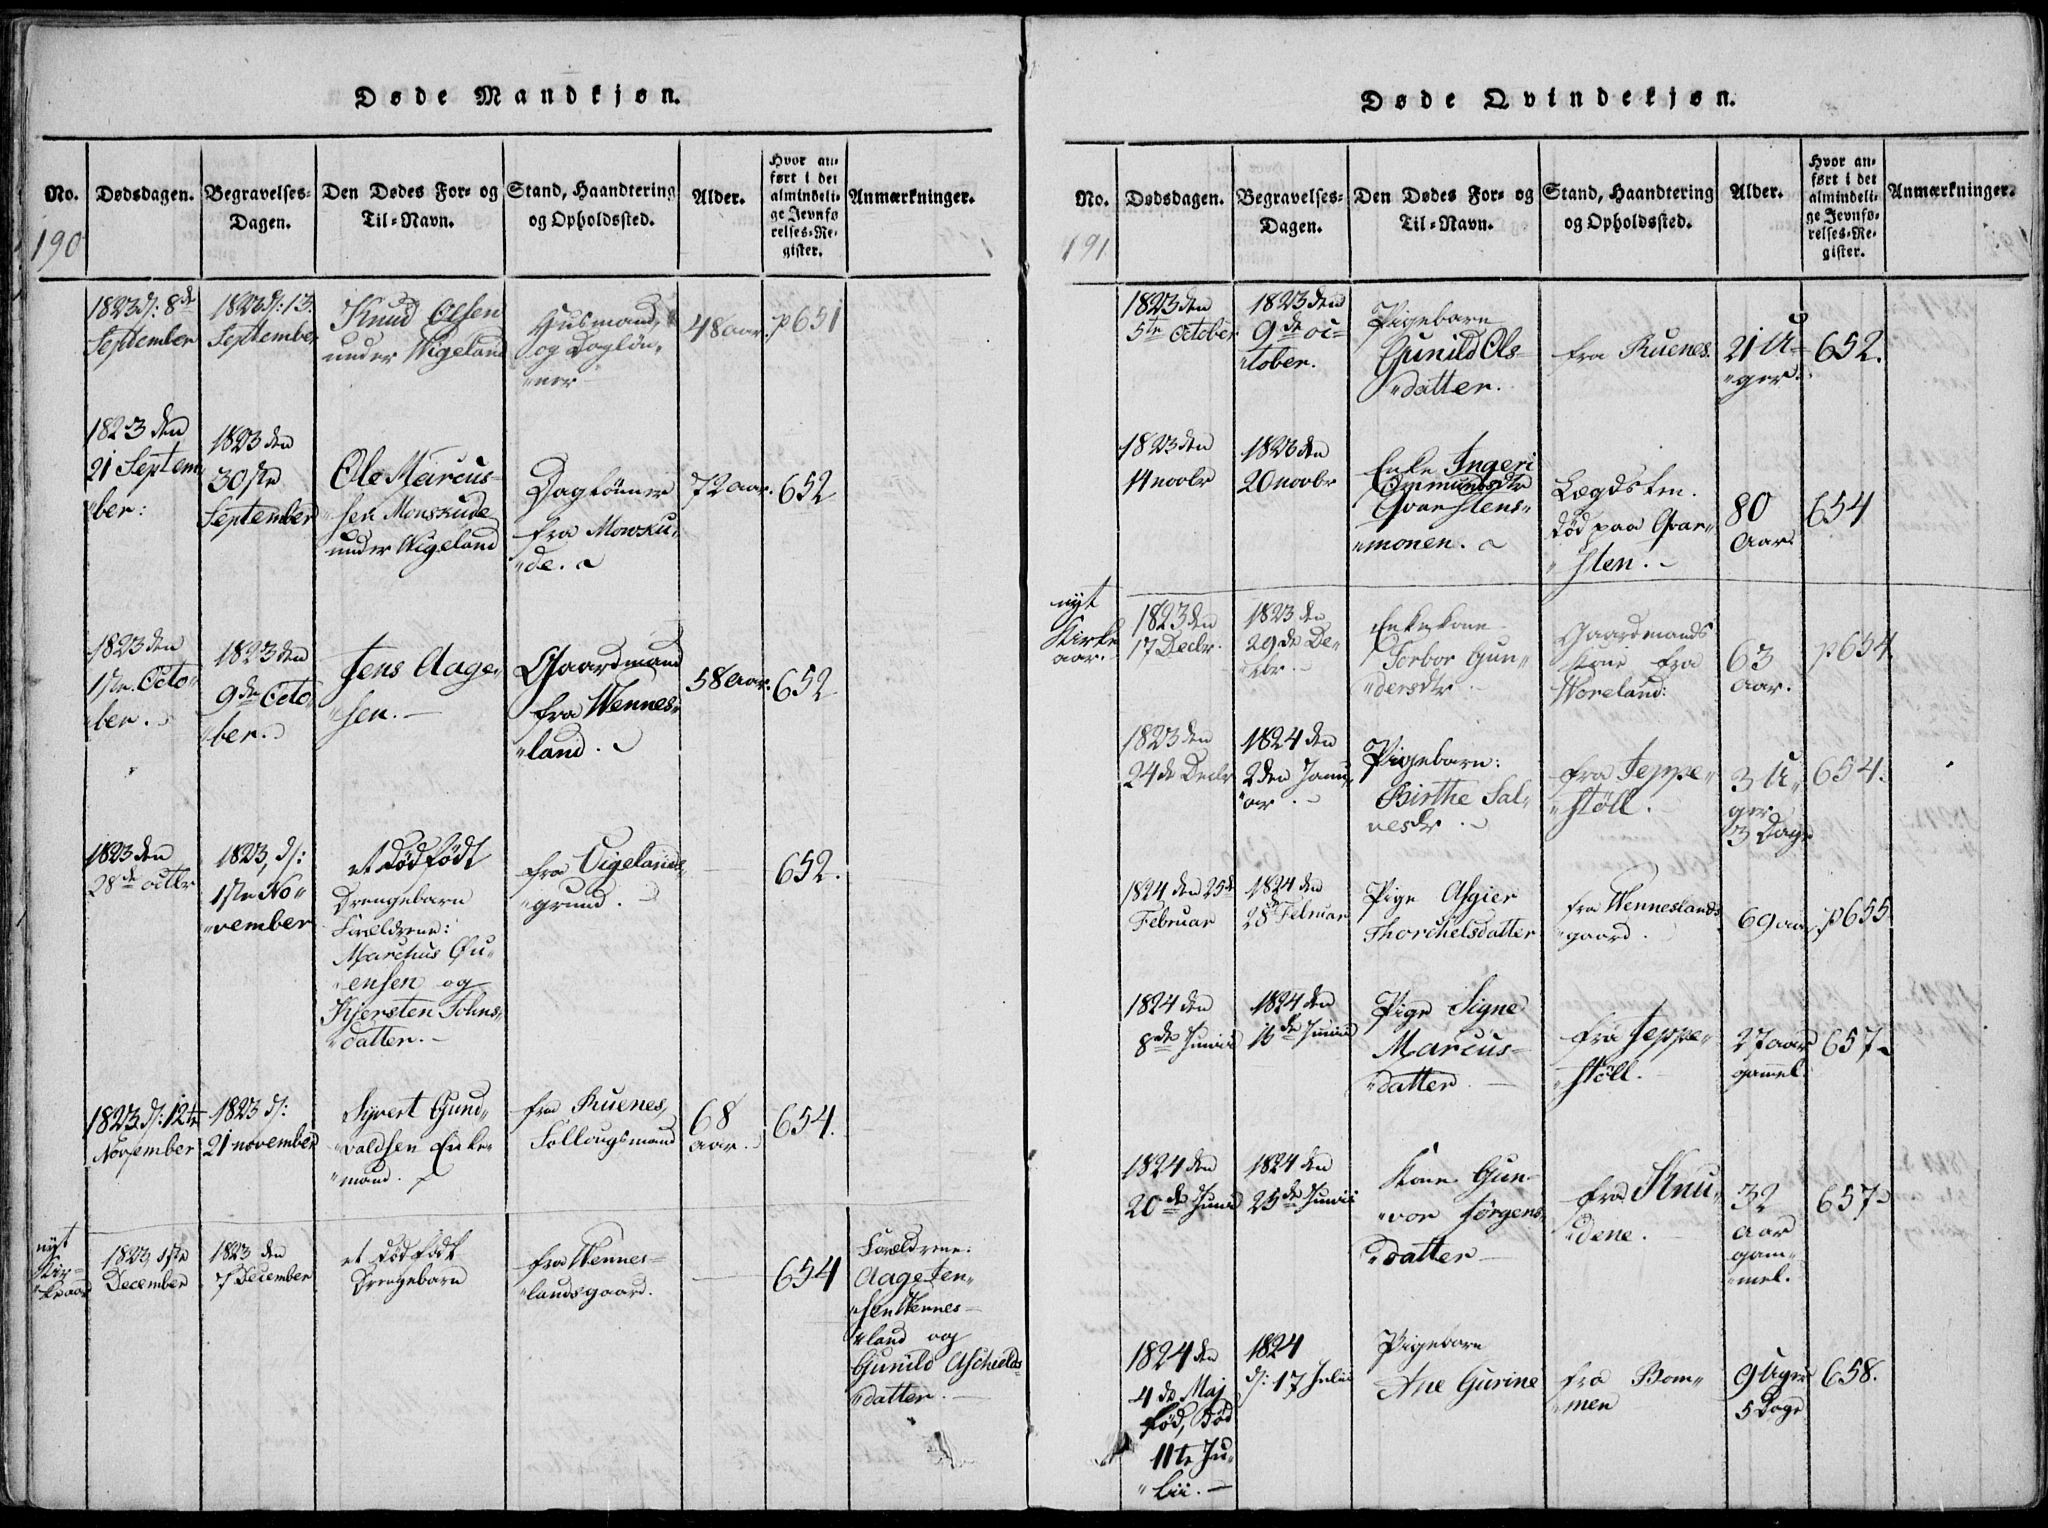 Døde Mandkjøn.
No.
Dødsdagen.
Begravelses-
Dagen.
Den Dødes For- og
Til-Navn.
Stand, Haandtering
og Opholdssted.
Alder.
Hvor an-
ført i det
almindeli-
ge Jevnfø-
relses-Re-
gister.
Anmærkninger.
190
1823 d: 8de
September
1823 d: 13.
September
Knud Olsen
under Wigeland
Husmand,
og Dagløn-
"ner
48 aar.
p 651
1823 den
21 Septem
"ber:
1823 den
30ste
September
Ole Marcus-
"sen Monskude
under Wigeland
Daglønner
fra Monsku-
"de.
72 aar.
652
1823 den
1ste Octo-
"ber.
1823 den
9de Octo-
"ber.
Jens Aage-
"sen.
Gaardmand
fra Wennes-
"land.
58 aar.
652
1823 den
28de octbr
1823, d:
1ste No-
"vember
et dødfødt
Drengebarn
Forældrene:
Marchus Øu-
"ensen og
Kjersten Johns-
"datter.
fra Vigelands-
"grund.
652.
1823 d: 12te
November
1823 d:
21 november
Sivert Gund-
"valdsen Enke-
"mand.
fra Ruenes,
Follougsmand
68
aar.
654.
nyt
Kir-
"keaar
1823, 1ste
December
1823 den
7 December
et dødfødt
Drengebarn
fra Wennes-
"landsgaard.
654
Forældrene:
Aage Jen-
"sen Wennes-
"land og
Gunild Aschields-
"datter.
Døde Qvindekjøn.
No.
Dødsdagen.
Begravelses-
Dagen.
Den Dødes For- og
Til-Navn.
Stand, Haandtering
og Opholdssted.
Alder.
Hvor an-
ført i det
almindeli-
ge Jevnfø-
relses-Re-
gister.
Anmærkninger.
191
1823 den
5te October
1823 den
9de oc-
"tober.
Pigebarn
Gunild Ols-
"datter.
fra Ruenes.
21 U-
"ger.
652.
1823 den
14 novbr
1823 den
20 novbr
Enke Ingeri
Ommundsdtr
Qvarstens-
"monen.
Lægdslem.
død paa Qvar-
"sten.
80
Aar.
654
nyt
Kirke
aar.
1823 den
17 Decbr.
1823 den
29de De-
"cbr.
Enkekone
Torbor Gun-
"dersdtr
Gaardmands
kone fra
Woreland:
63
aar.
p 654.
1823 den
24de Decbr
1824 den
2den Janu-
"ar.
Pigebarn:
Birthe Sal-
vesdr.
fra Jeppe-
"støll.
3 U-
ger
3 Dage
654.
1824 den 25de
Februar
1824 den
28 Februar
Pige Asgier
Thorchelsdatter
fra Wenneslands
"gaard.
69 aar
p 655
1824 den
8de Junii
1824 den
16de Junii
Pige Signe
Marcus-
"datter.
fra Jeppe-
"støll.
27 aar
gammel.
657
1824 den
20de Junii
1824 den
25de Junii
Kone Gun-
"vor Jørgens-
"datter
fra Knu-
"dene.
32
aar
gam-
"mel.
657
1824 den
4de Maj
fød, Død
11te Ju-
"lii.
1824
d: 17 Julii
Pigebarn
Ane Gurine
fra Bom-
"men
9 Uger
5 Dage
658.